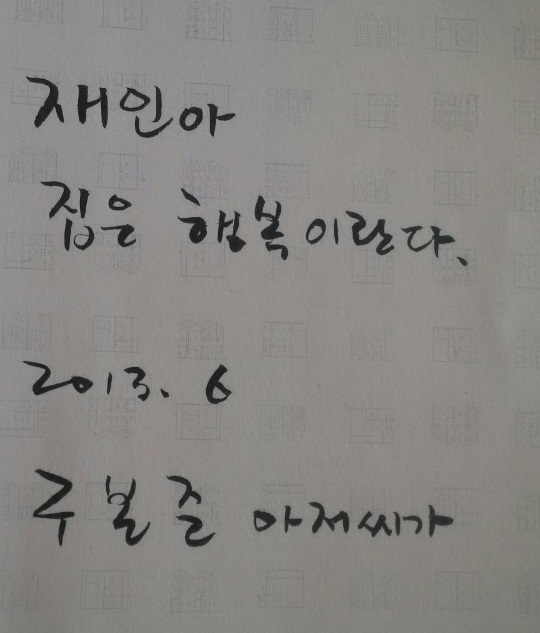 재인아
집은 행복이란다.
2013. 6
구본준 아저씨가